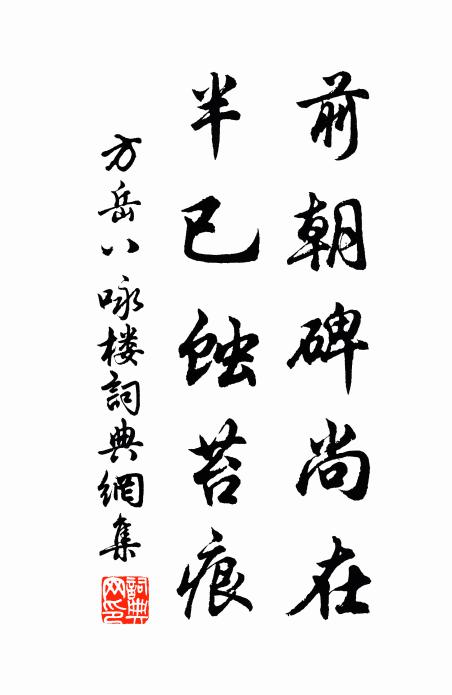 前朝碑尚在
半已蝕苔痕
方岳八咏楼詞典網集
詞典网印